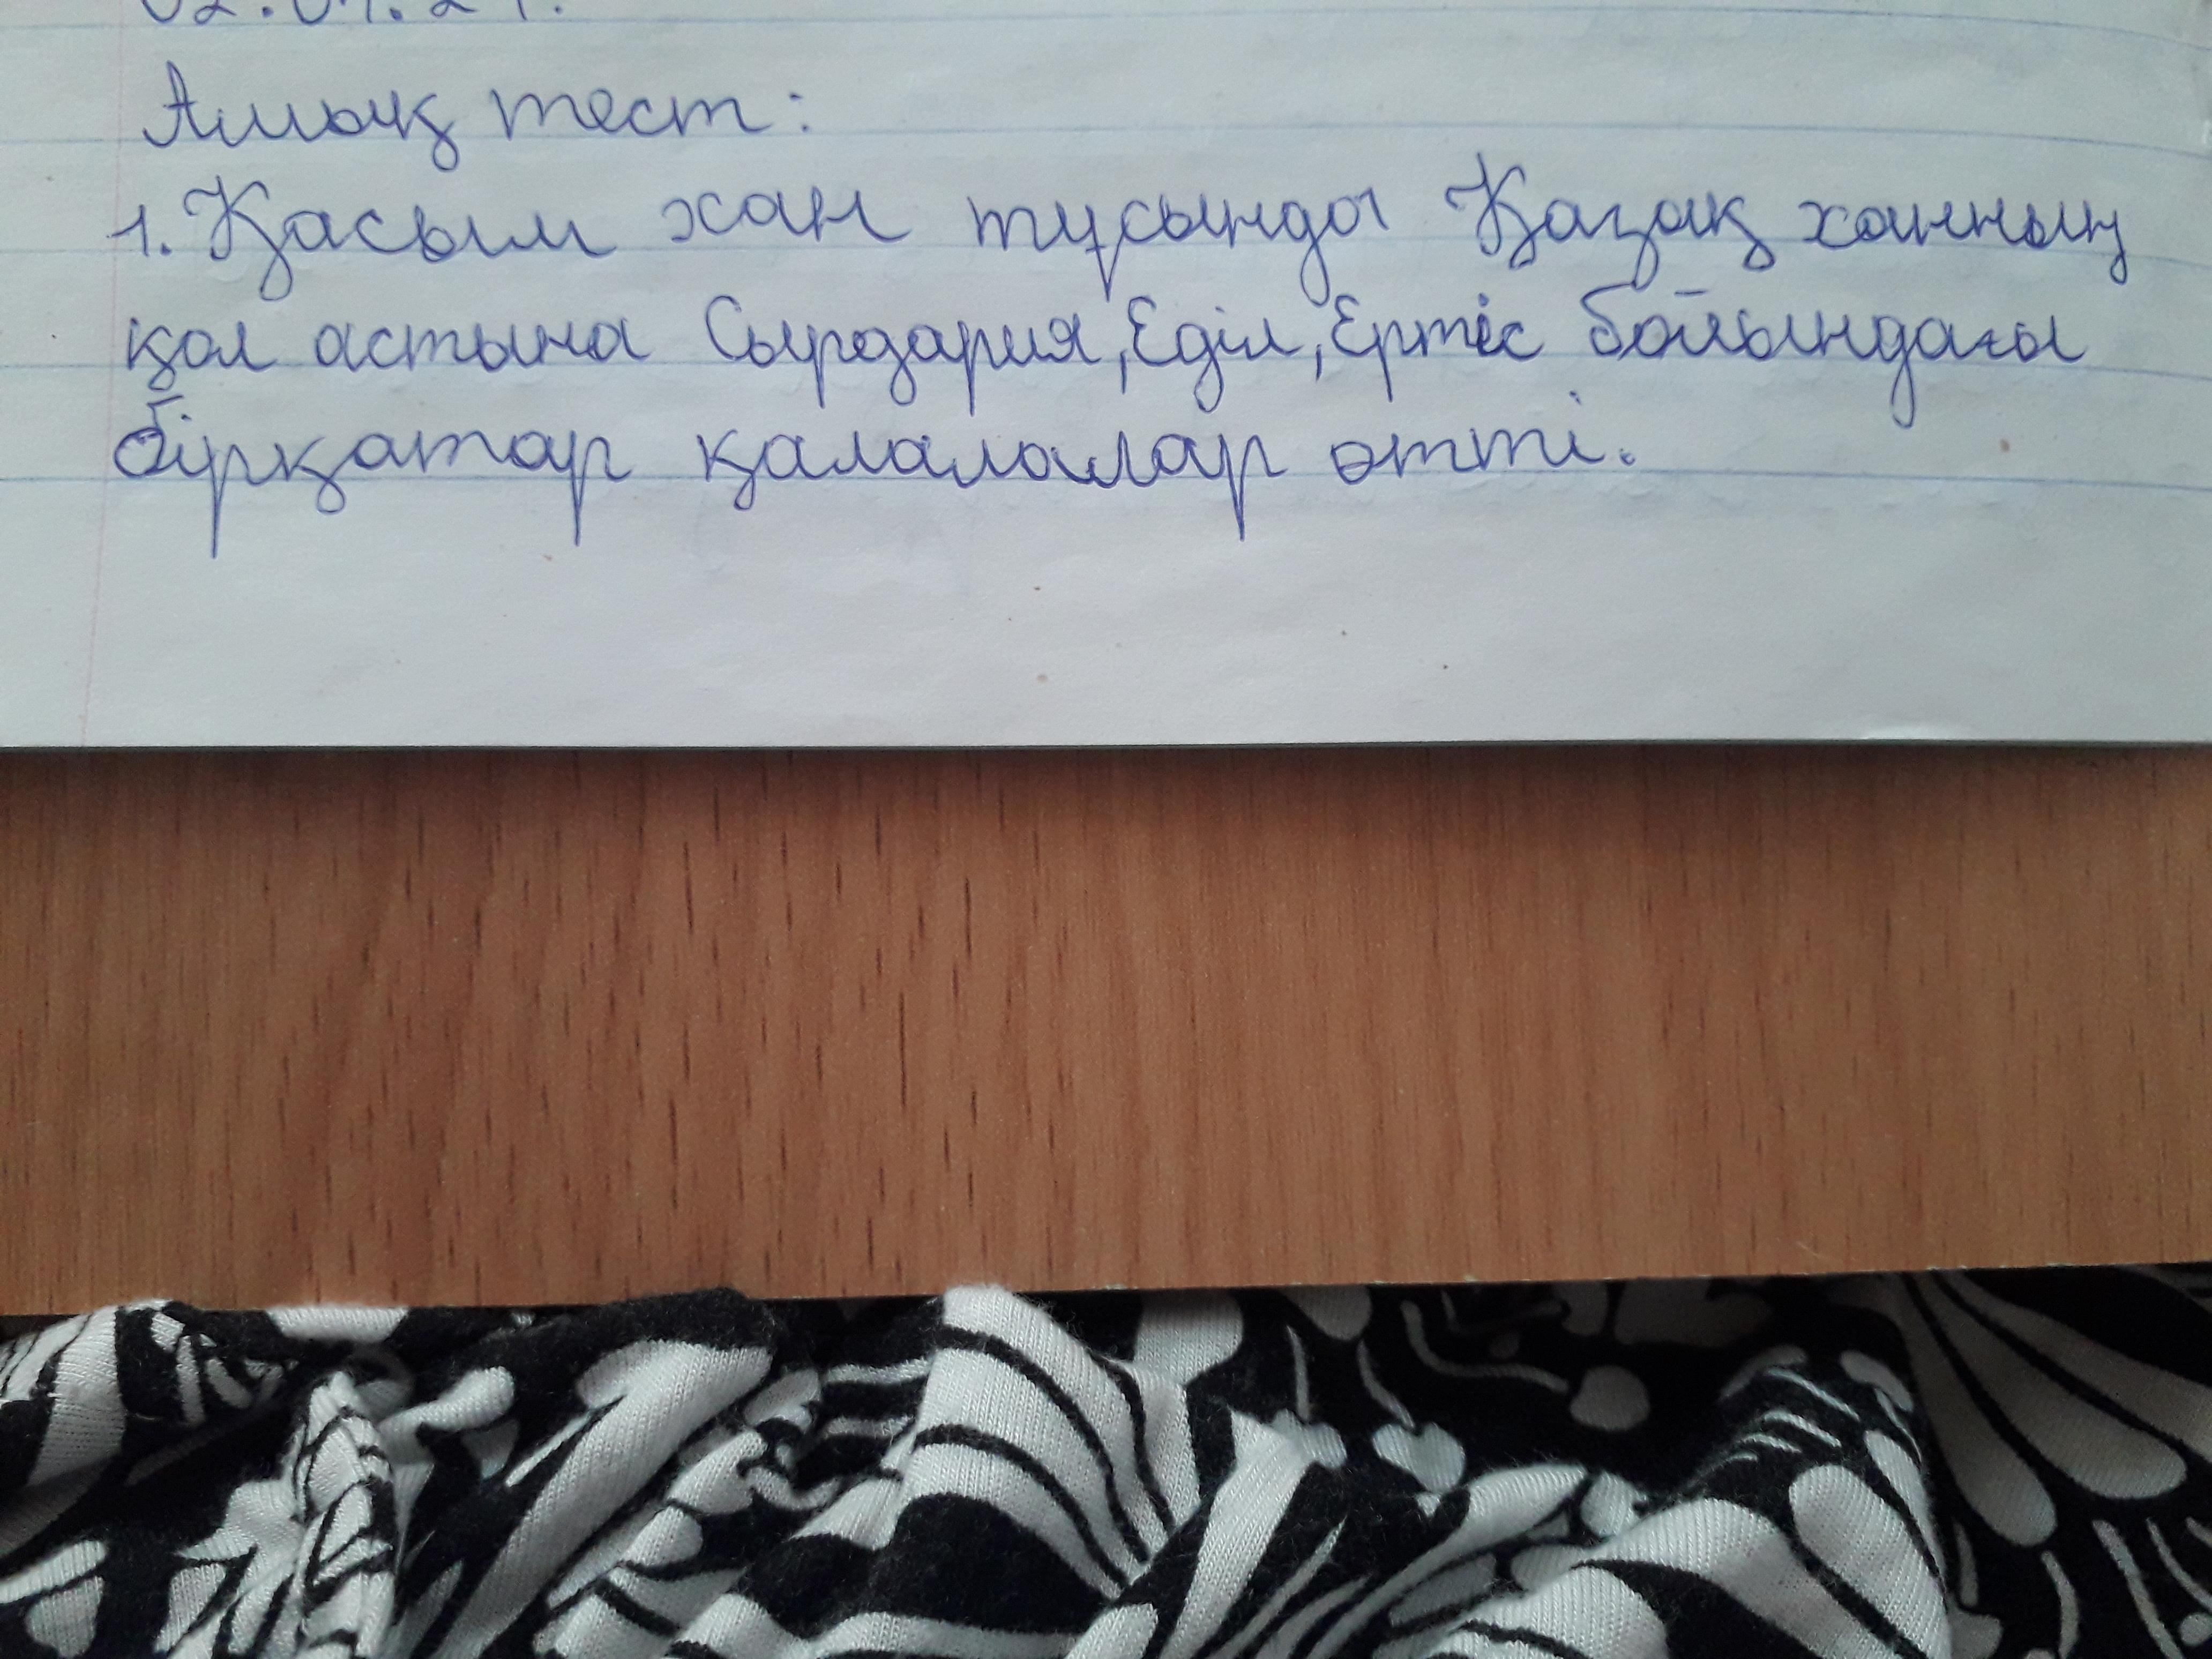 Ашық тест:
1. Қасым хан тұсында Қазақ ханның
қол астына Сырдария, Еділ, Ертіс бойындағы
бірқатар қалалалар өтті.